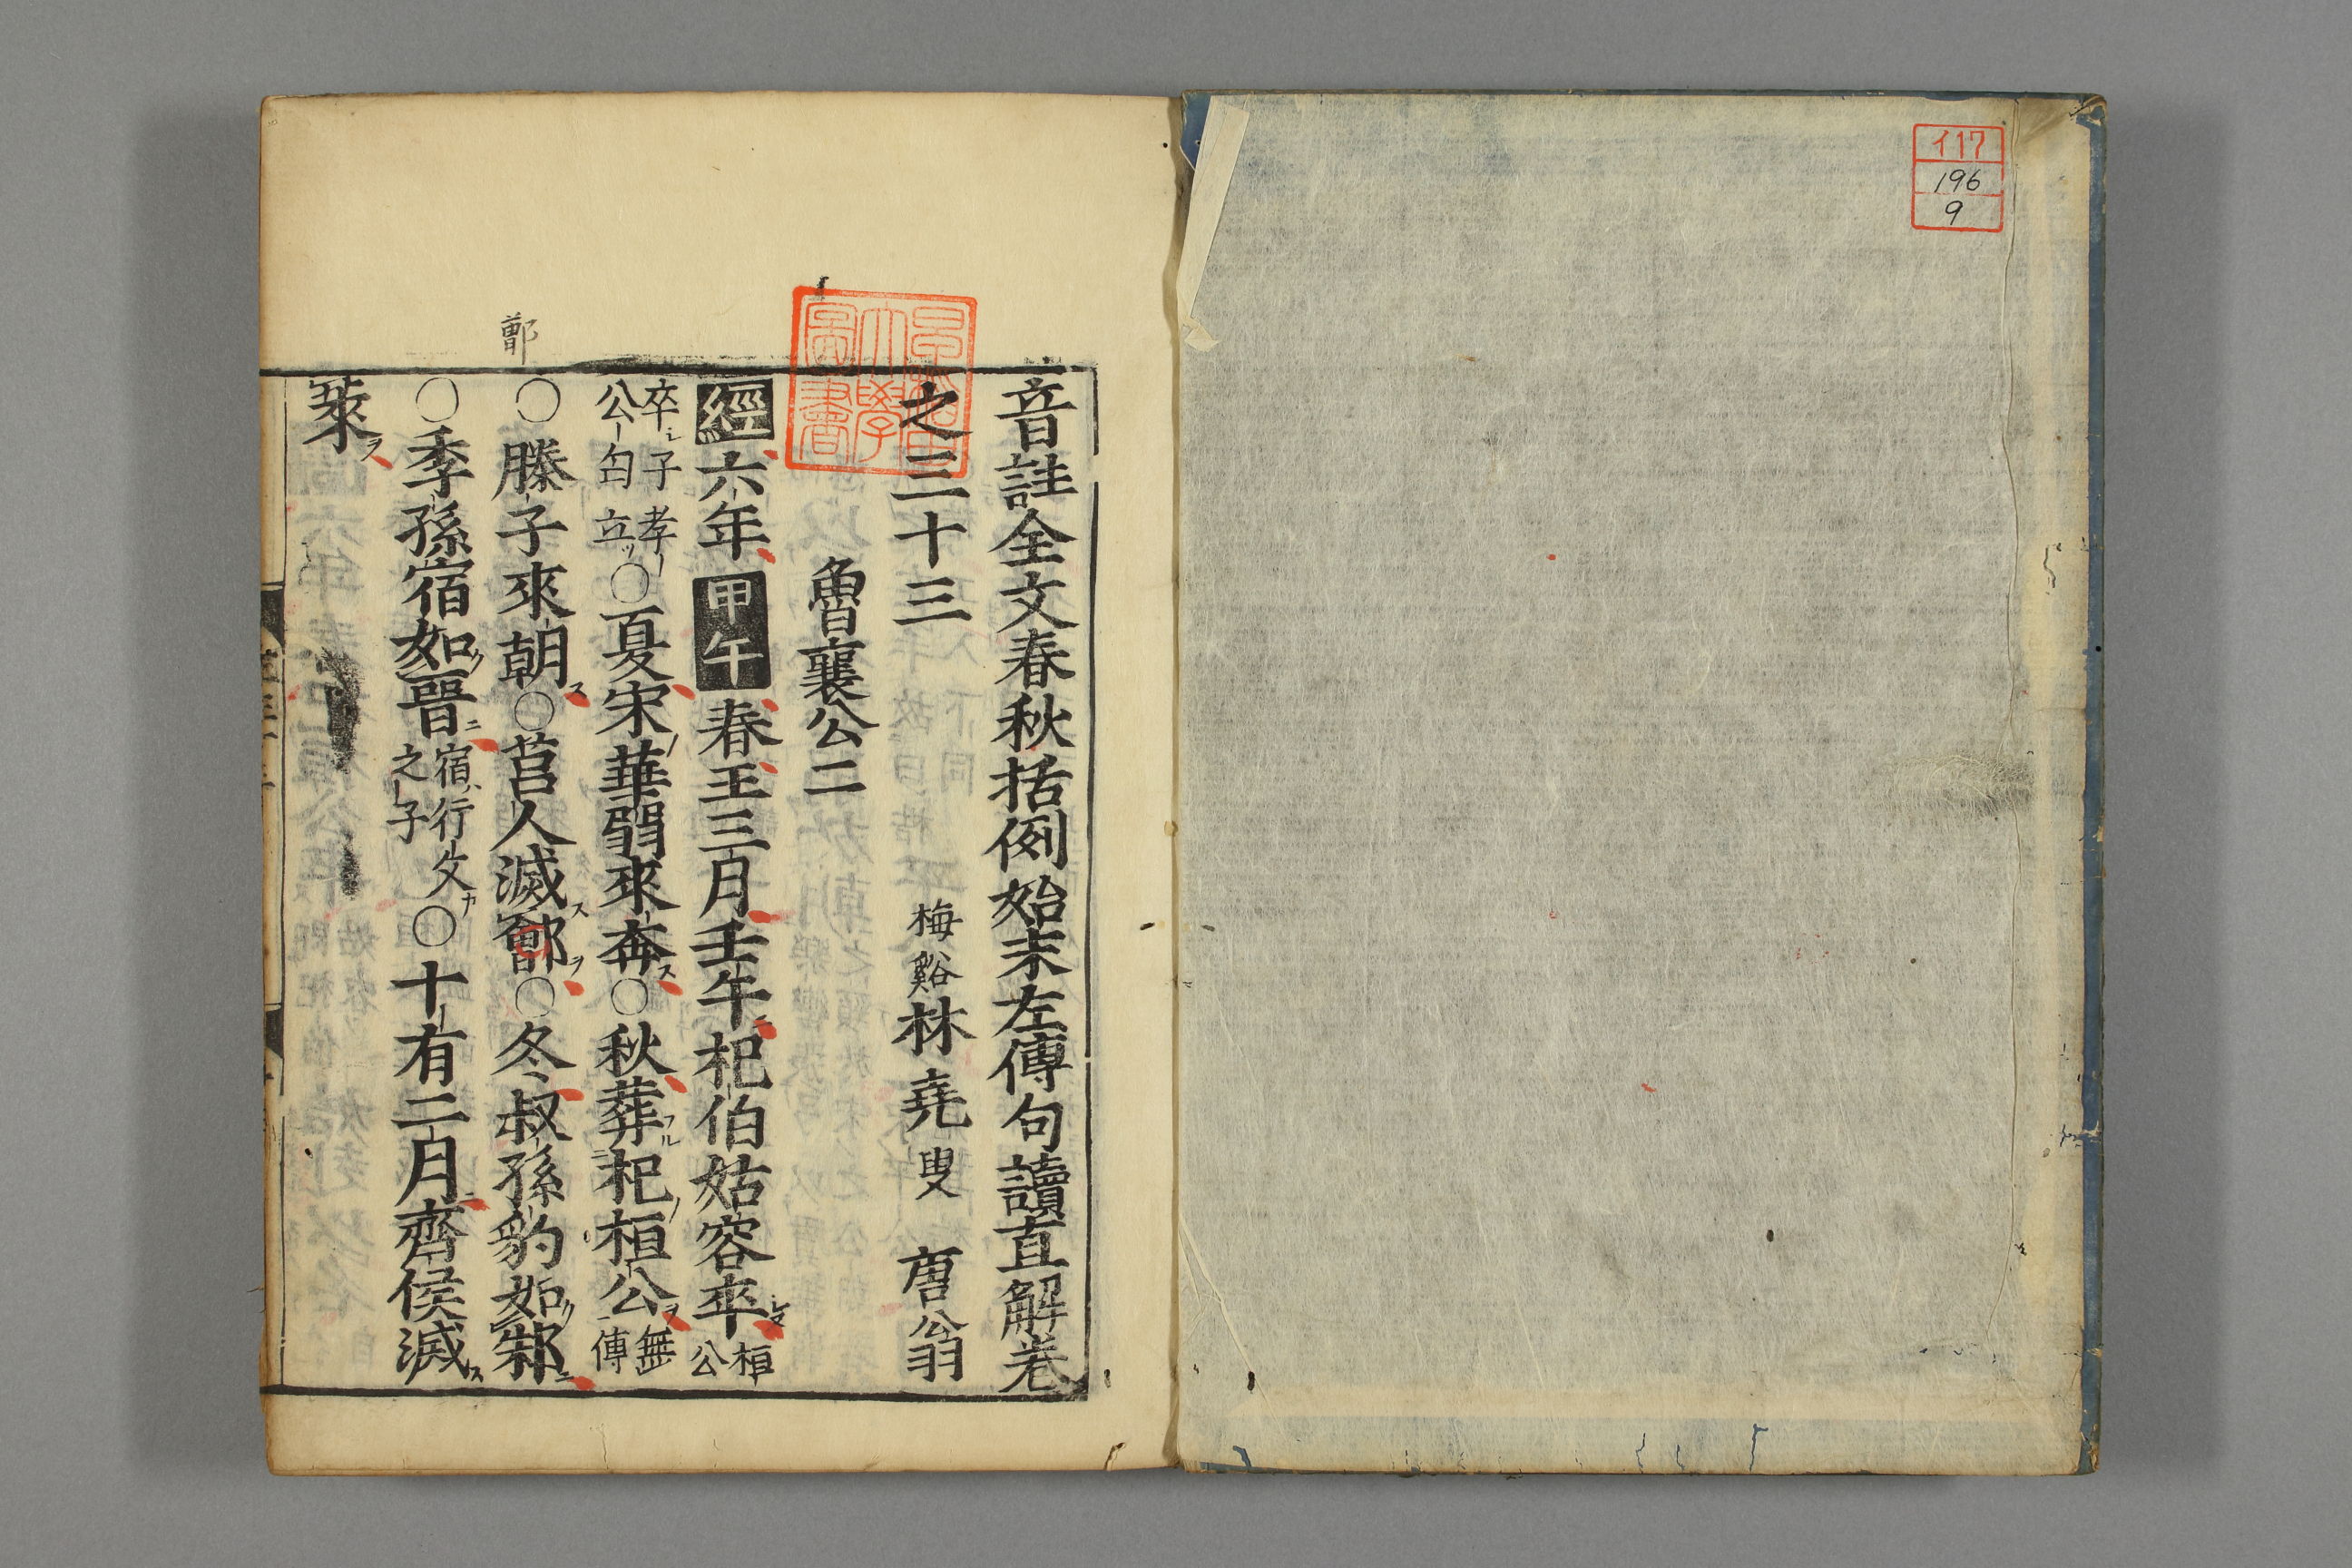 イ17
196
9
音註全文春秋括例始末左傳句讀直解卷
之二十三
梅谿林堯叟 唐翁
魯襄公二
經六年甲午春王三月壬午杞伯姑容卒桓公
卒子孝公匄立○夏宋華弱來奔○秋葬杞桓公無傳
○滕子來朝○莒人滅鄫○冬叔孫豹如邾
○季孫宿如晉宿行父之子○十有二月齊侯滅
萊
鄫